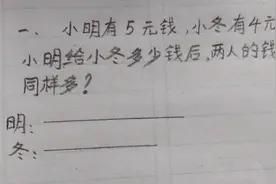 一、小明有5元钱,小冬有4元
小明给小冬多少钱后,两人的钱
同样多?
明:
冬: